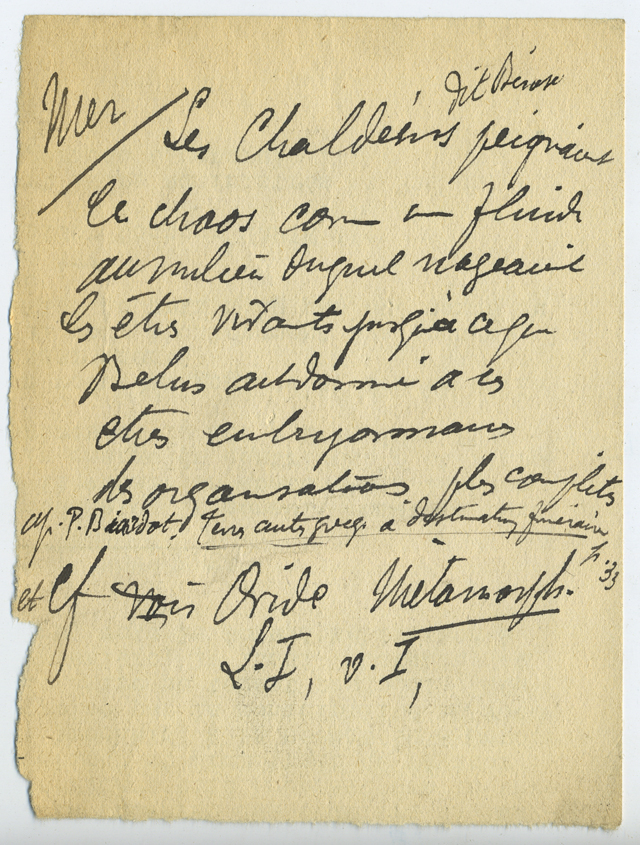 dit Bérose
Mer / Les Chaldéens peignaient
le chaos com un fluide
au milieu duquel nageaient
les êtres vivants jusqu'à ce que
Belus eut donné à ces
êtres embryonnaires
des organisations plus complètes
ap. P. Biardot, Terres cuites grecq. à destination funéraire
p. 33
et Cf vois Ovide Métamorph.
L. I, v. I,